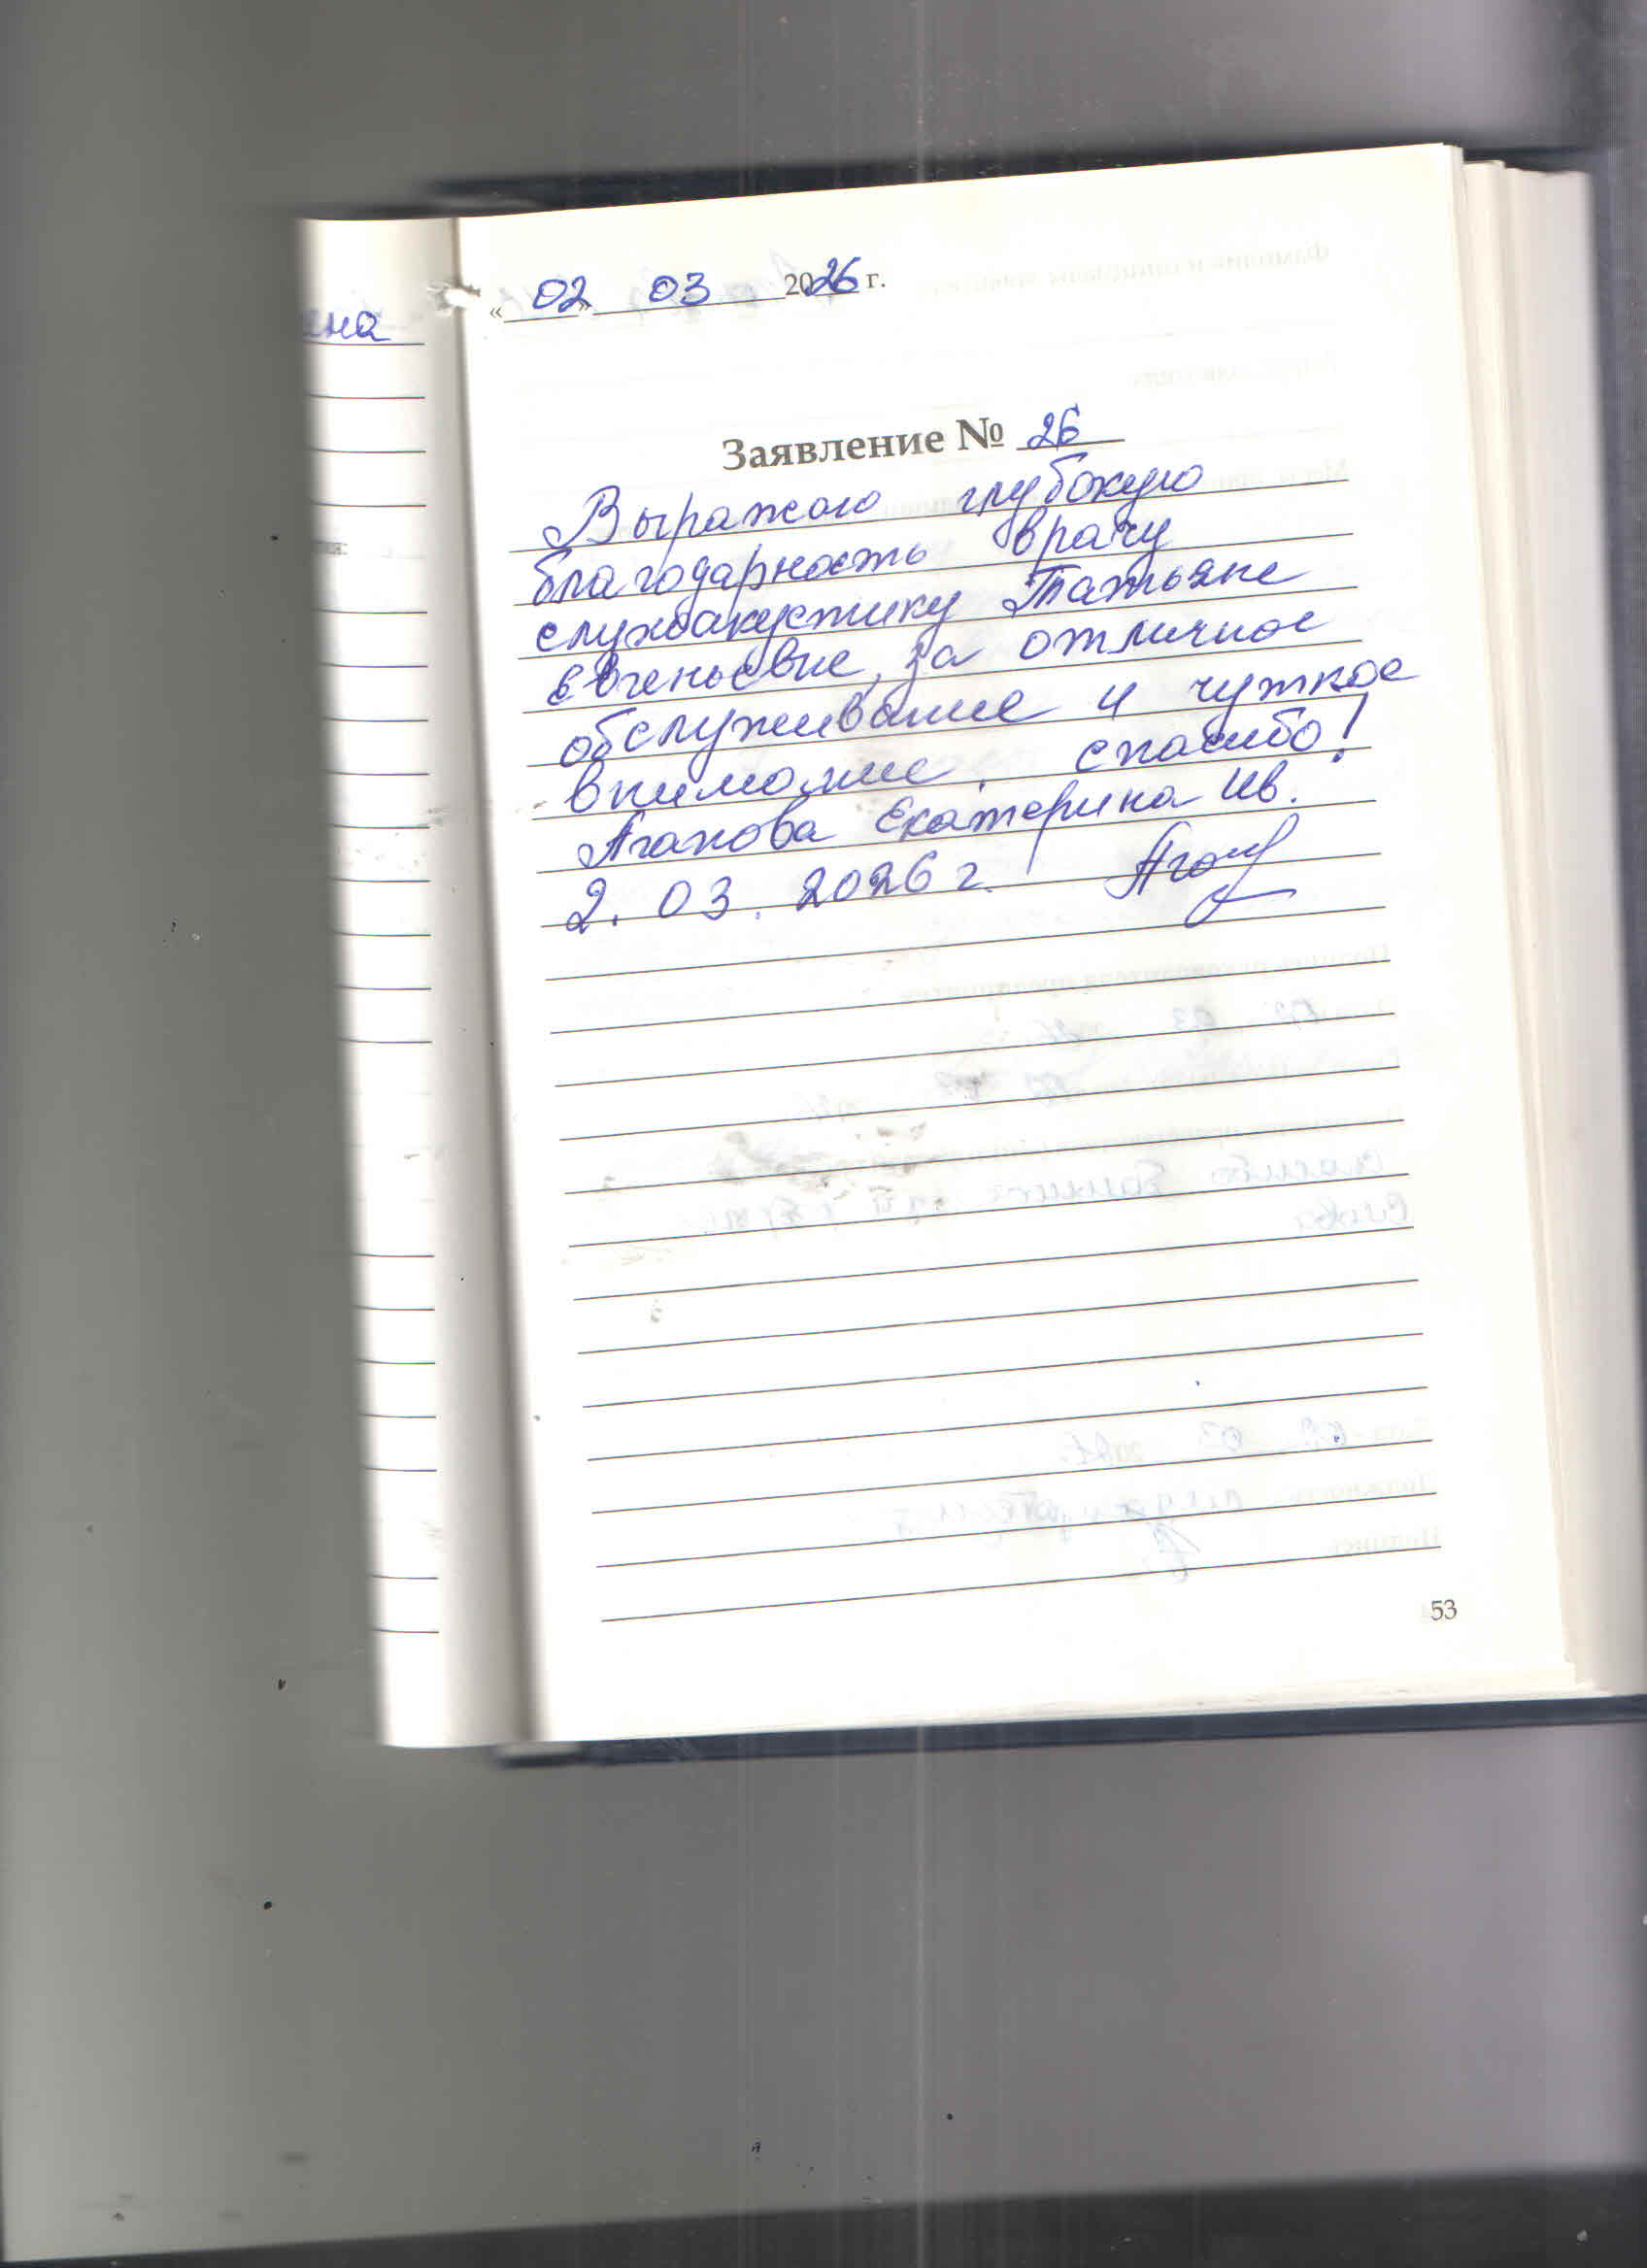 «02» 03 2026 г.
ена
Заявление № 26
Выражаю глубокую
благодарность врачу
слухоакустику Татьяне
Евгеньевне, за отличное
обслуживание и чуткое
внимание. спасибо!
Екатерина Ив.
2. 03. 2026 г.
53